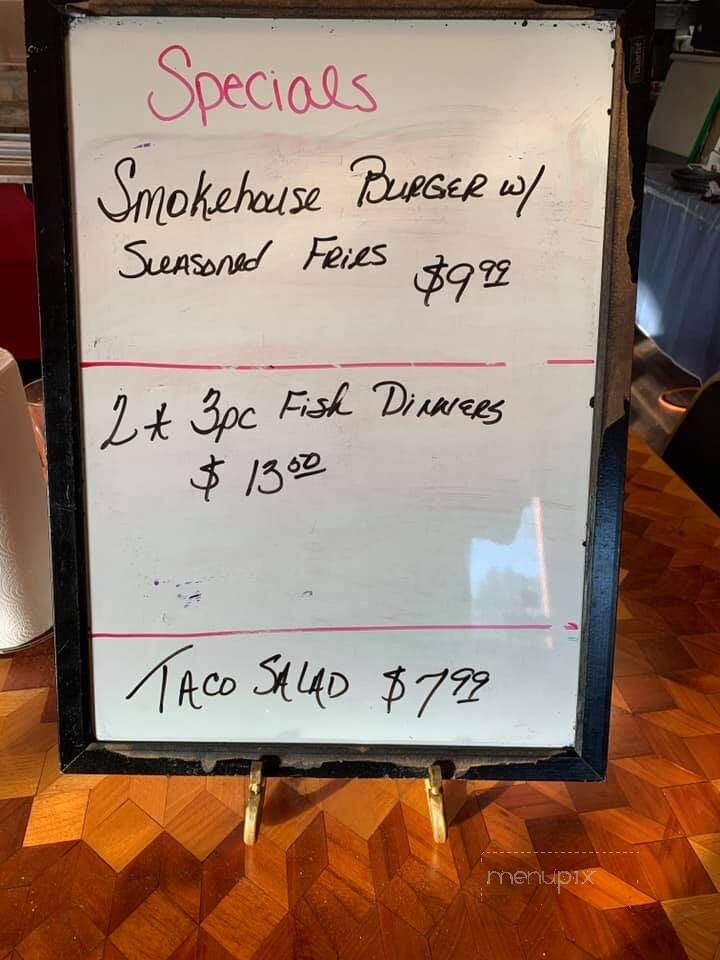 Specials
Smokehouse BURGER w/
Seasoned FRIES $9.99
2 * 3pc Fish DINNERS
$13.00
TACO SALAD $7.99
menupix